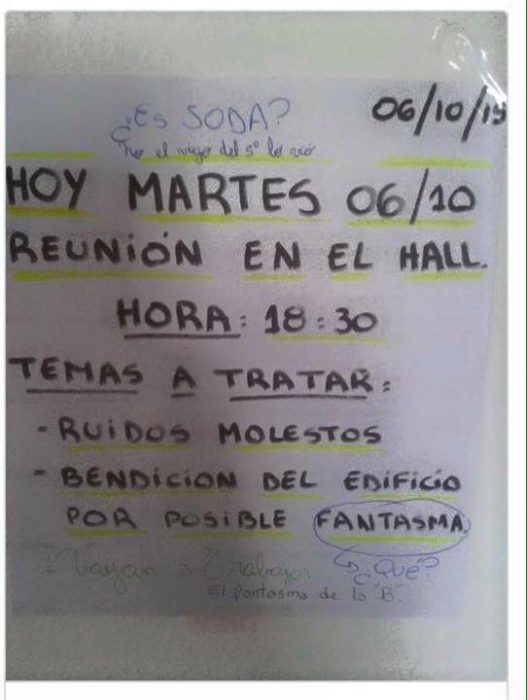 06/10/15
¿Es SODA?
no el del 5º lo
HOY MARTES 06/10
REUNIÓN EN EL HALL.
HORA: 18:30
TEMAS A TRATAR:
- RUIDOS MOLESTOS
- BENDICION DEL EDIFICIO
POR POSIBLE FANTASMA.
¡Vayan a trabajar
¿QUÉ?
El fantasma de la "B".